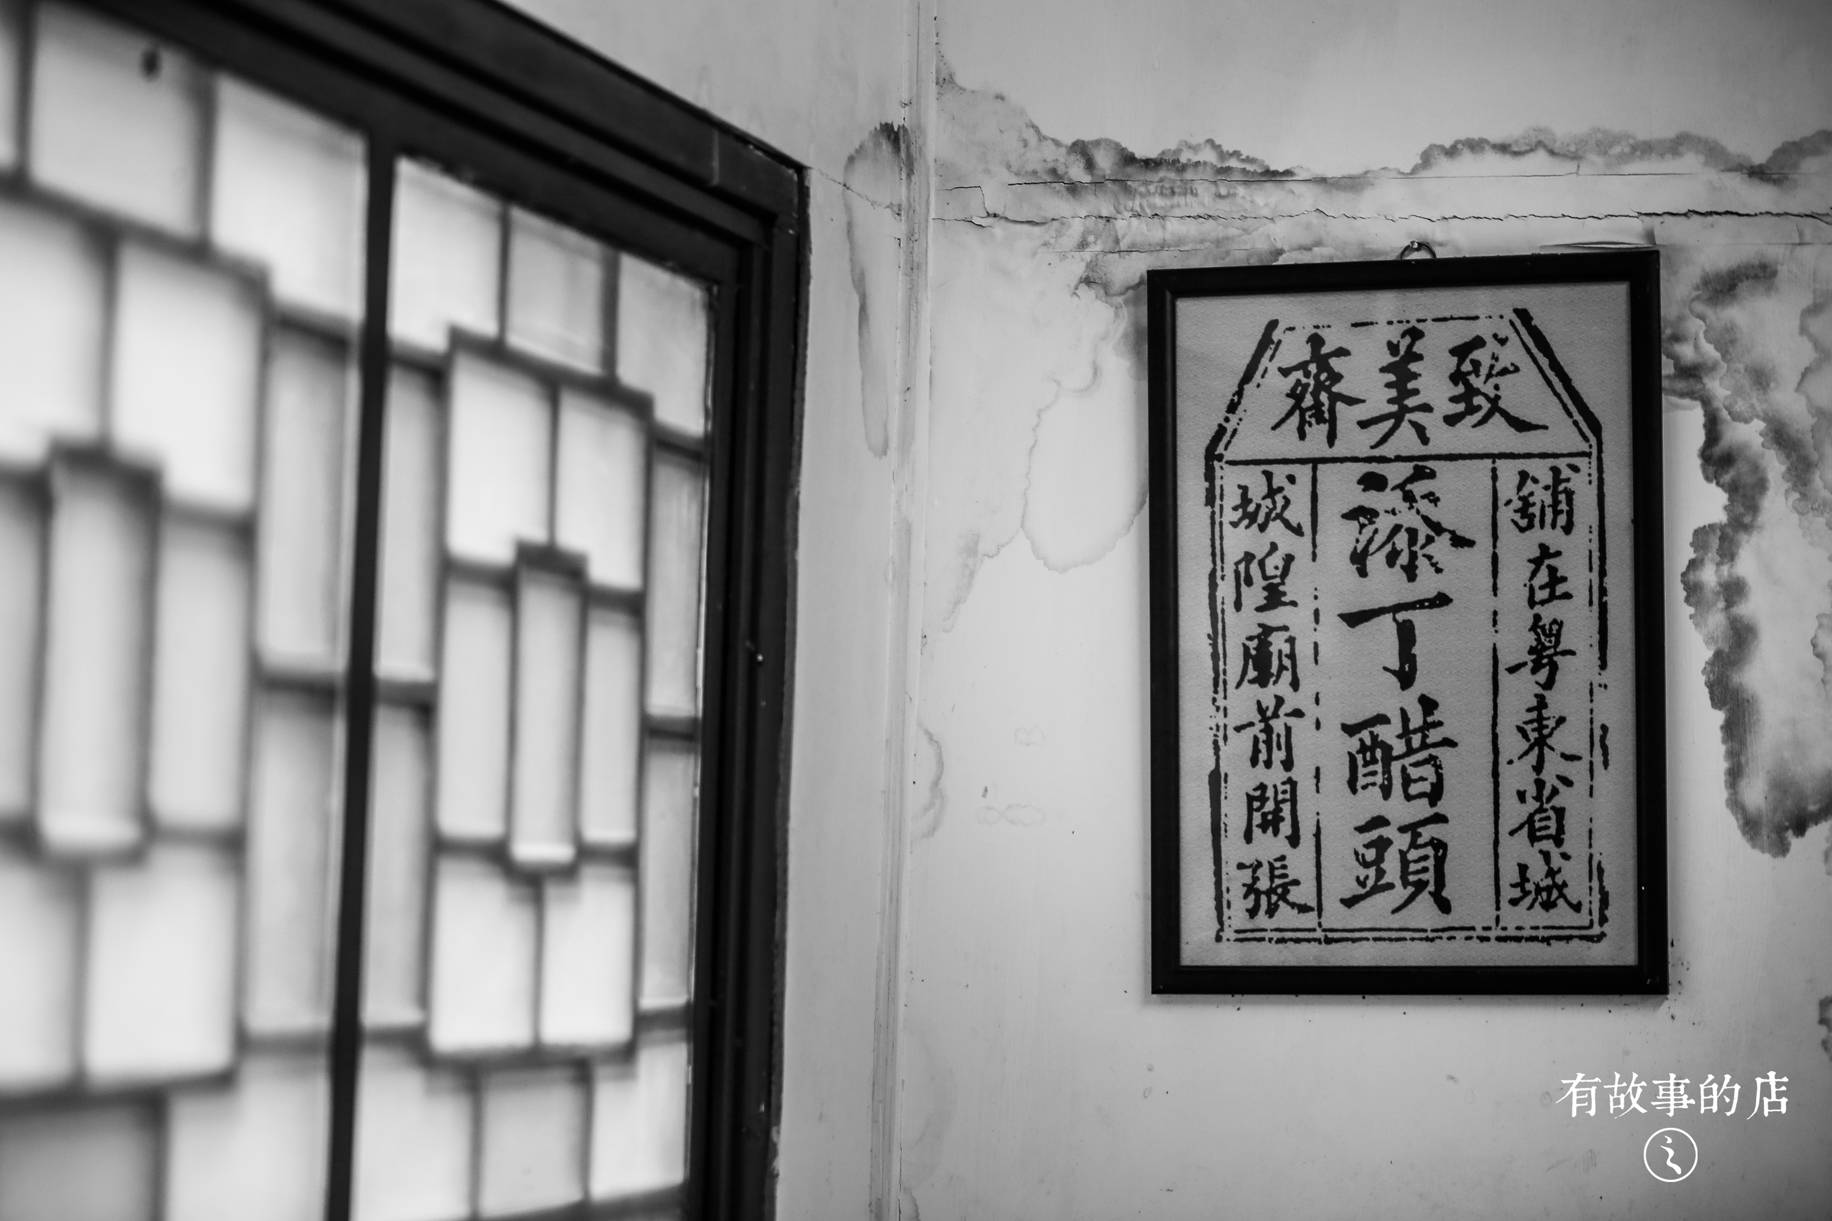 致美齋
舖在粤東省城
添丁醋頭
城隍廟前開張
有故事的店
之